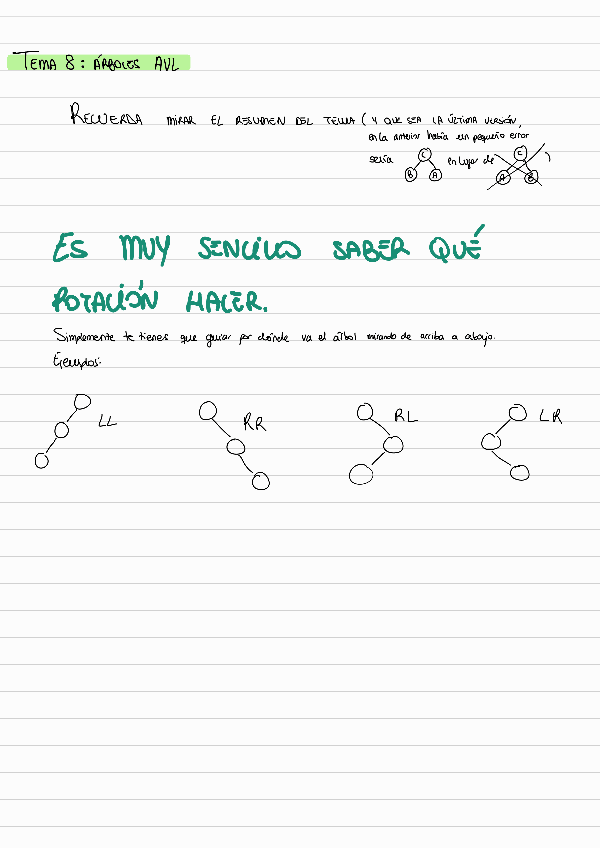 TEMA 8: ÁRBOLES AVL
RECUERDA MIRAR EL RESUMEN DEL TEMA (Y QUE SEA LA ÚLTIMA VERSIÓN,
en la anterior había un pequeño error
sería C B A en lugar de C A B )
ES MUY SENCILLO SABER QUÉ
ROTACIÓN HACER.
Simplemente te tienes que guiar por dónde va el árbol mirando de arriba a abajo.
Ejemplos:
LL RR RL LR